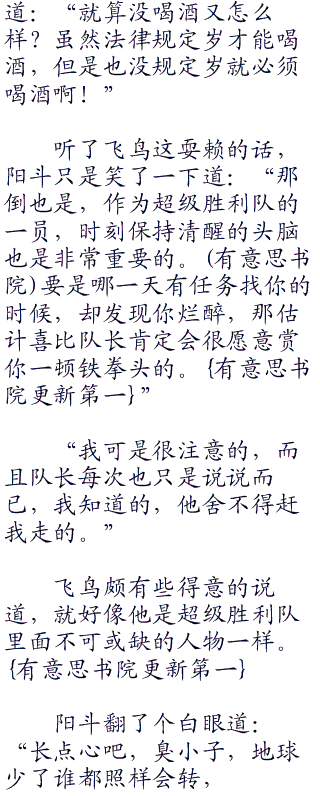 道：“就算没喝酒又怎么
样？虽然法律规定岁才能喝
酒，但是也没规定岁就必须
喝酒啊！”
听了飞鸟这耍赖的话，
阳斗只是笑了一下道：“那
倒也是，作为超级胜利队的
一员，时刻保持清醒的头脑
也是非常重要的。(有意思书
院)要是哪一天有任务找你的
时候，却发现你烂醉，那估
计喜比队长肯定会很愿意赏
你一顿铁拳头的。{有意思书
院更新第一}”
“我可是很注意的，而
且队长每次也只是说说而
已，我知道的，他舍不得赶
我走的。”
飞鸟颇有些得意的说
道，就好像他是超级胜利队
里面不可或缺的人物一样。
{有意思书院更新第一}
阳斗翻了个白眼道：
“长点心吧，臭小子，地球
少了谁都照样会转，